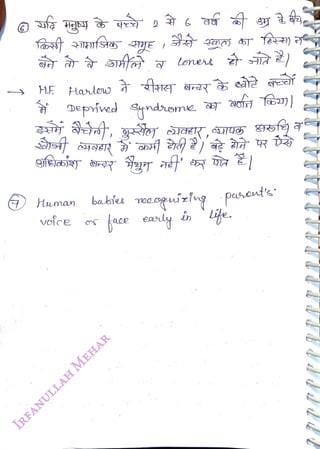 ⑥ यदि मनुष्य के बच्चे 2 से 6 वर्ष की उम्र के बीच
किसी सामाजिक समूह, जैसे स्कूल का हिस्सा न
बने तो वे शर्मीले व loners हो जाते है।
→ H.F. Harlow ने रीसस बन्दर के छोटे बच्चों
में Deprived Syndrome का वर्णन किया।
इसमें बैचेनी, गुस्सैल व्यवहार, व्यापक अरूचि व
खोजी व्यवहार में कमी होती है। बड़े होने पर ऐसे
अधिकांश बन्दर मैथुन नहीं कर पाते है।
⑦ Human babies recognizing parent's
voice or face early in life.
IRFANULLAH MEHAR